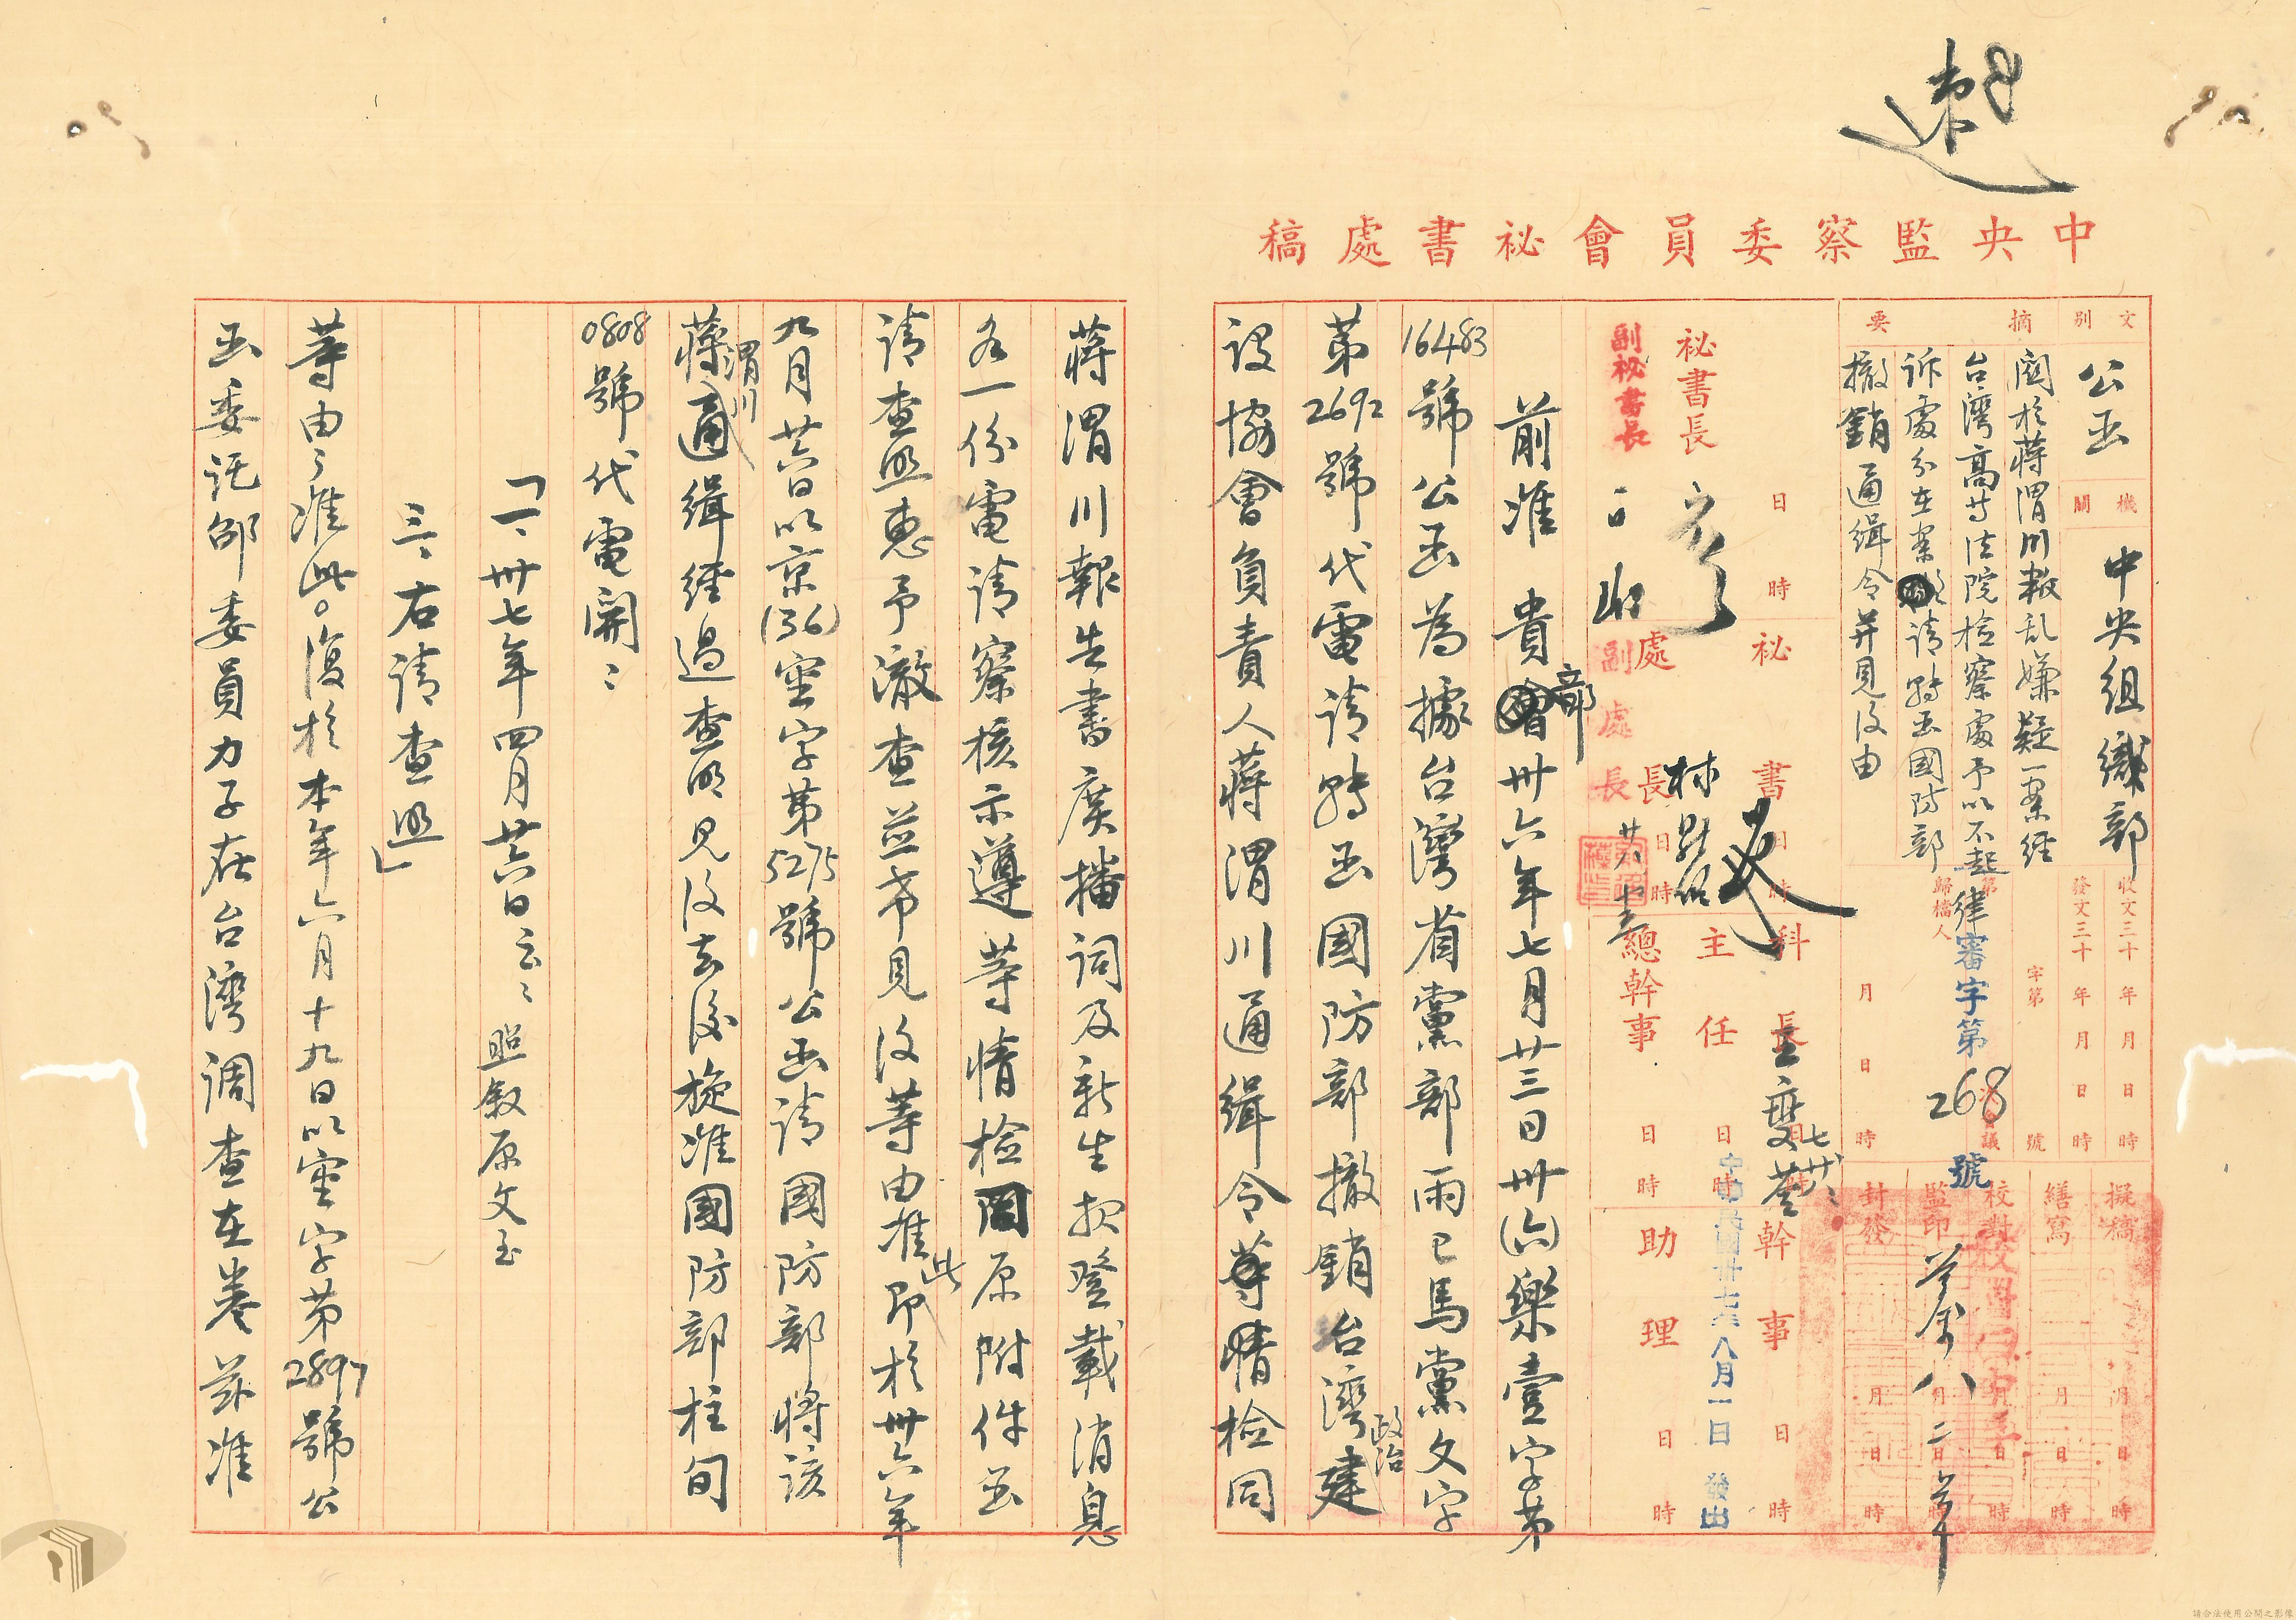 速
中央監察委員會秘書處稿
文別 公函
機關 中央組織部
摘要
關於蔣渭川叛乱嫌疑一案経
台湾高等法院检察處予以不起
訴處分在案 請轉函國防部
撤銷通缉令并見復由
收文三十 年 月 日 時
發文三十 年 月 日 時
字第 號
歸檔人
律審字第268號
月 日 時
擬稿 月 日 時
繕寫 月 日 時
校對 月 日 時
監印 月 日 時
封發 月 日 時
八 二
秘書長
副秘書長
日 時
秘書 日 時
處長 日 時
副處長
科長
主任 日 時
總幹事 日 時
幹事 日 時
助理 日 時
中華民國卅七年八月一日發出
前准 貴部卅六年七月廿三日卅(六)樂壹字第
16483號公函為據台灣省黨部雨巳馬黨文字
第2692號代電请轉函國防部撤銷台灣政治建
设協會負責人蔣渭川通缉令等情检同
蔣渭川報告書廣播詞及新生报登載消息
各一份電请察核示遵等情检同原附件函
请查照惠予澈查並希見復等由准此即於卅六年
九月廿六日以京(36)密字第5275號公函请國防部將该
蔣渭川通缉経過查明見復去後旋准國防部柱旬
0808號代電開：
「一、卅七年四月廿六日云：照叙原文至
三、右请查照」
等由；准此。復於本年六月十九日以密字第2897號公
函委託邵委員力子在台湾调查在卷兹准
請合法使用公開之影像